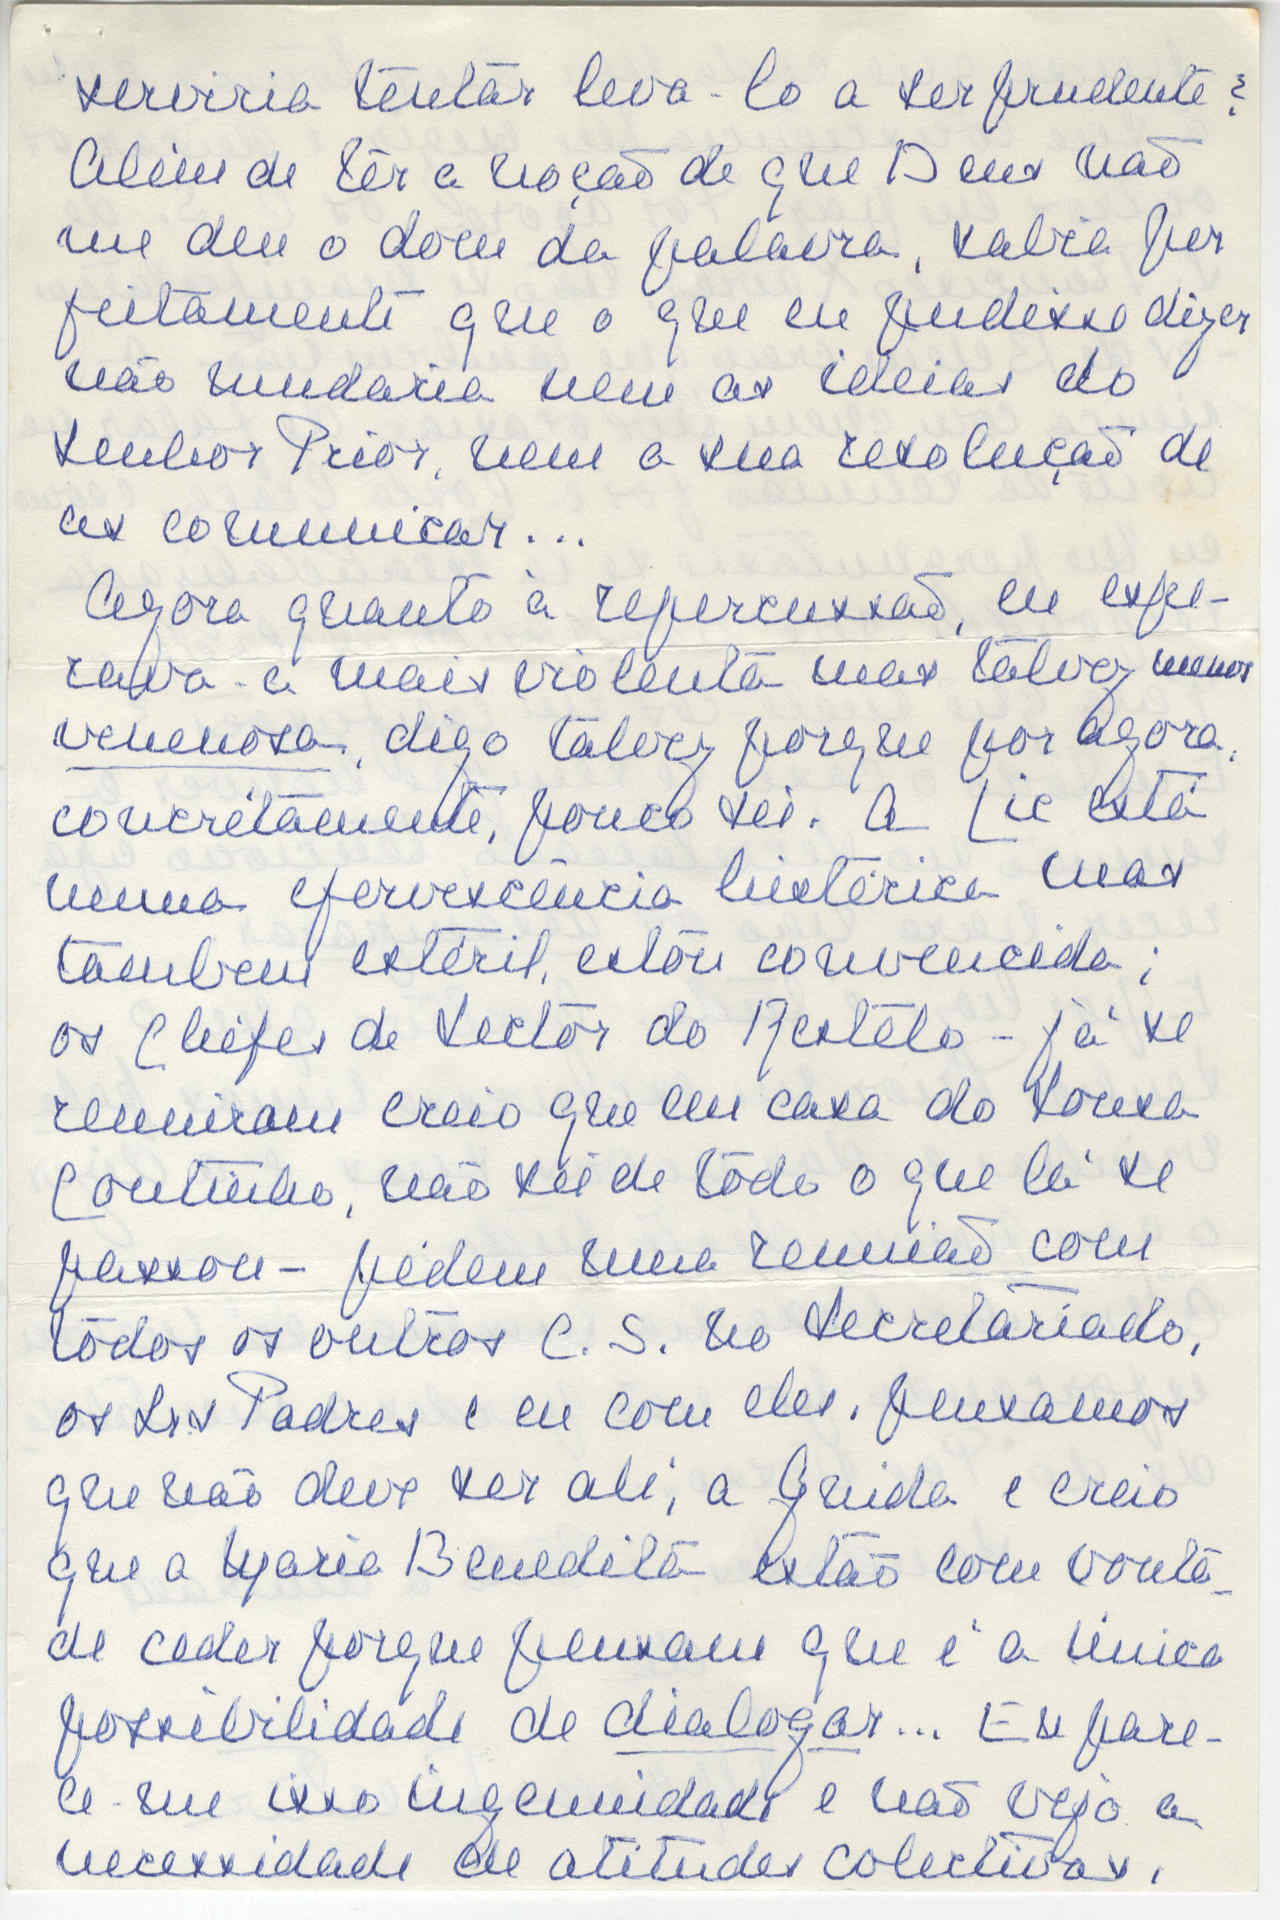 serviria tentar leva-lo a ser prudente?
Além de têr a noção de que Deus não
me deu o dom da palavra, sabia per
feitamente que o que eu pudesse dizer
não mudaria nem as ideias do
Senhor Prior, nem a sua resolução de
as comunicar...
Agora quanto à repercussão, eu espe-
rava-a mais violenta mas talvez menos
venenosa, digo talvez porque por agora,
concrétamente, pouco sei. A Lic está
numa efervescência histérica mas
tambem estéril, estou convencida;
os Chefes de Sector do Restêlo - já se
reuniram creio que em casa do Sousa
Coutinho, não sei de todo o que lá se
passou - pédem uma reunião com
todos os outros C. S. no Secretariado,
os Srs Padres e eu com eles, pensamos
que não deve ser ali, a Guida e creio
que a Maria Benedita estão com vonta-
de ceder porque pensam que é a única
possibilidade de dialogar... Eu pare-
ce-me isso ingenuidade e não vejo a
necessidade de atitudes colectivas,